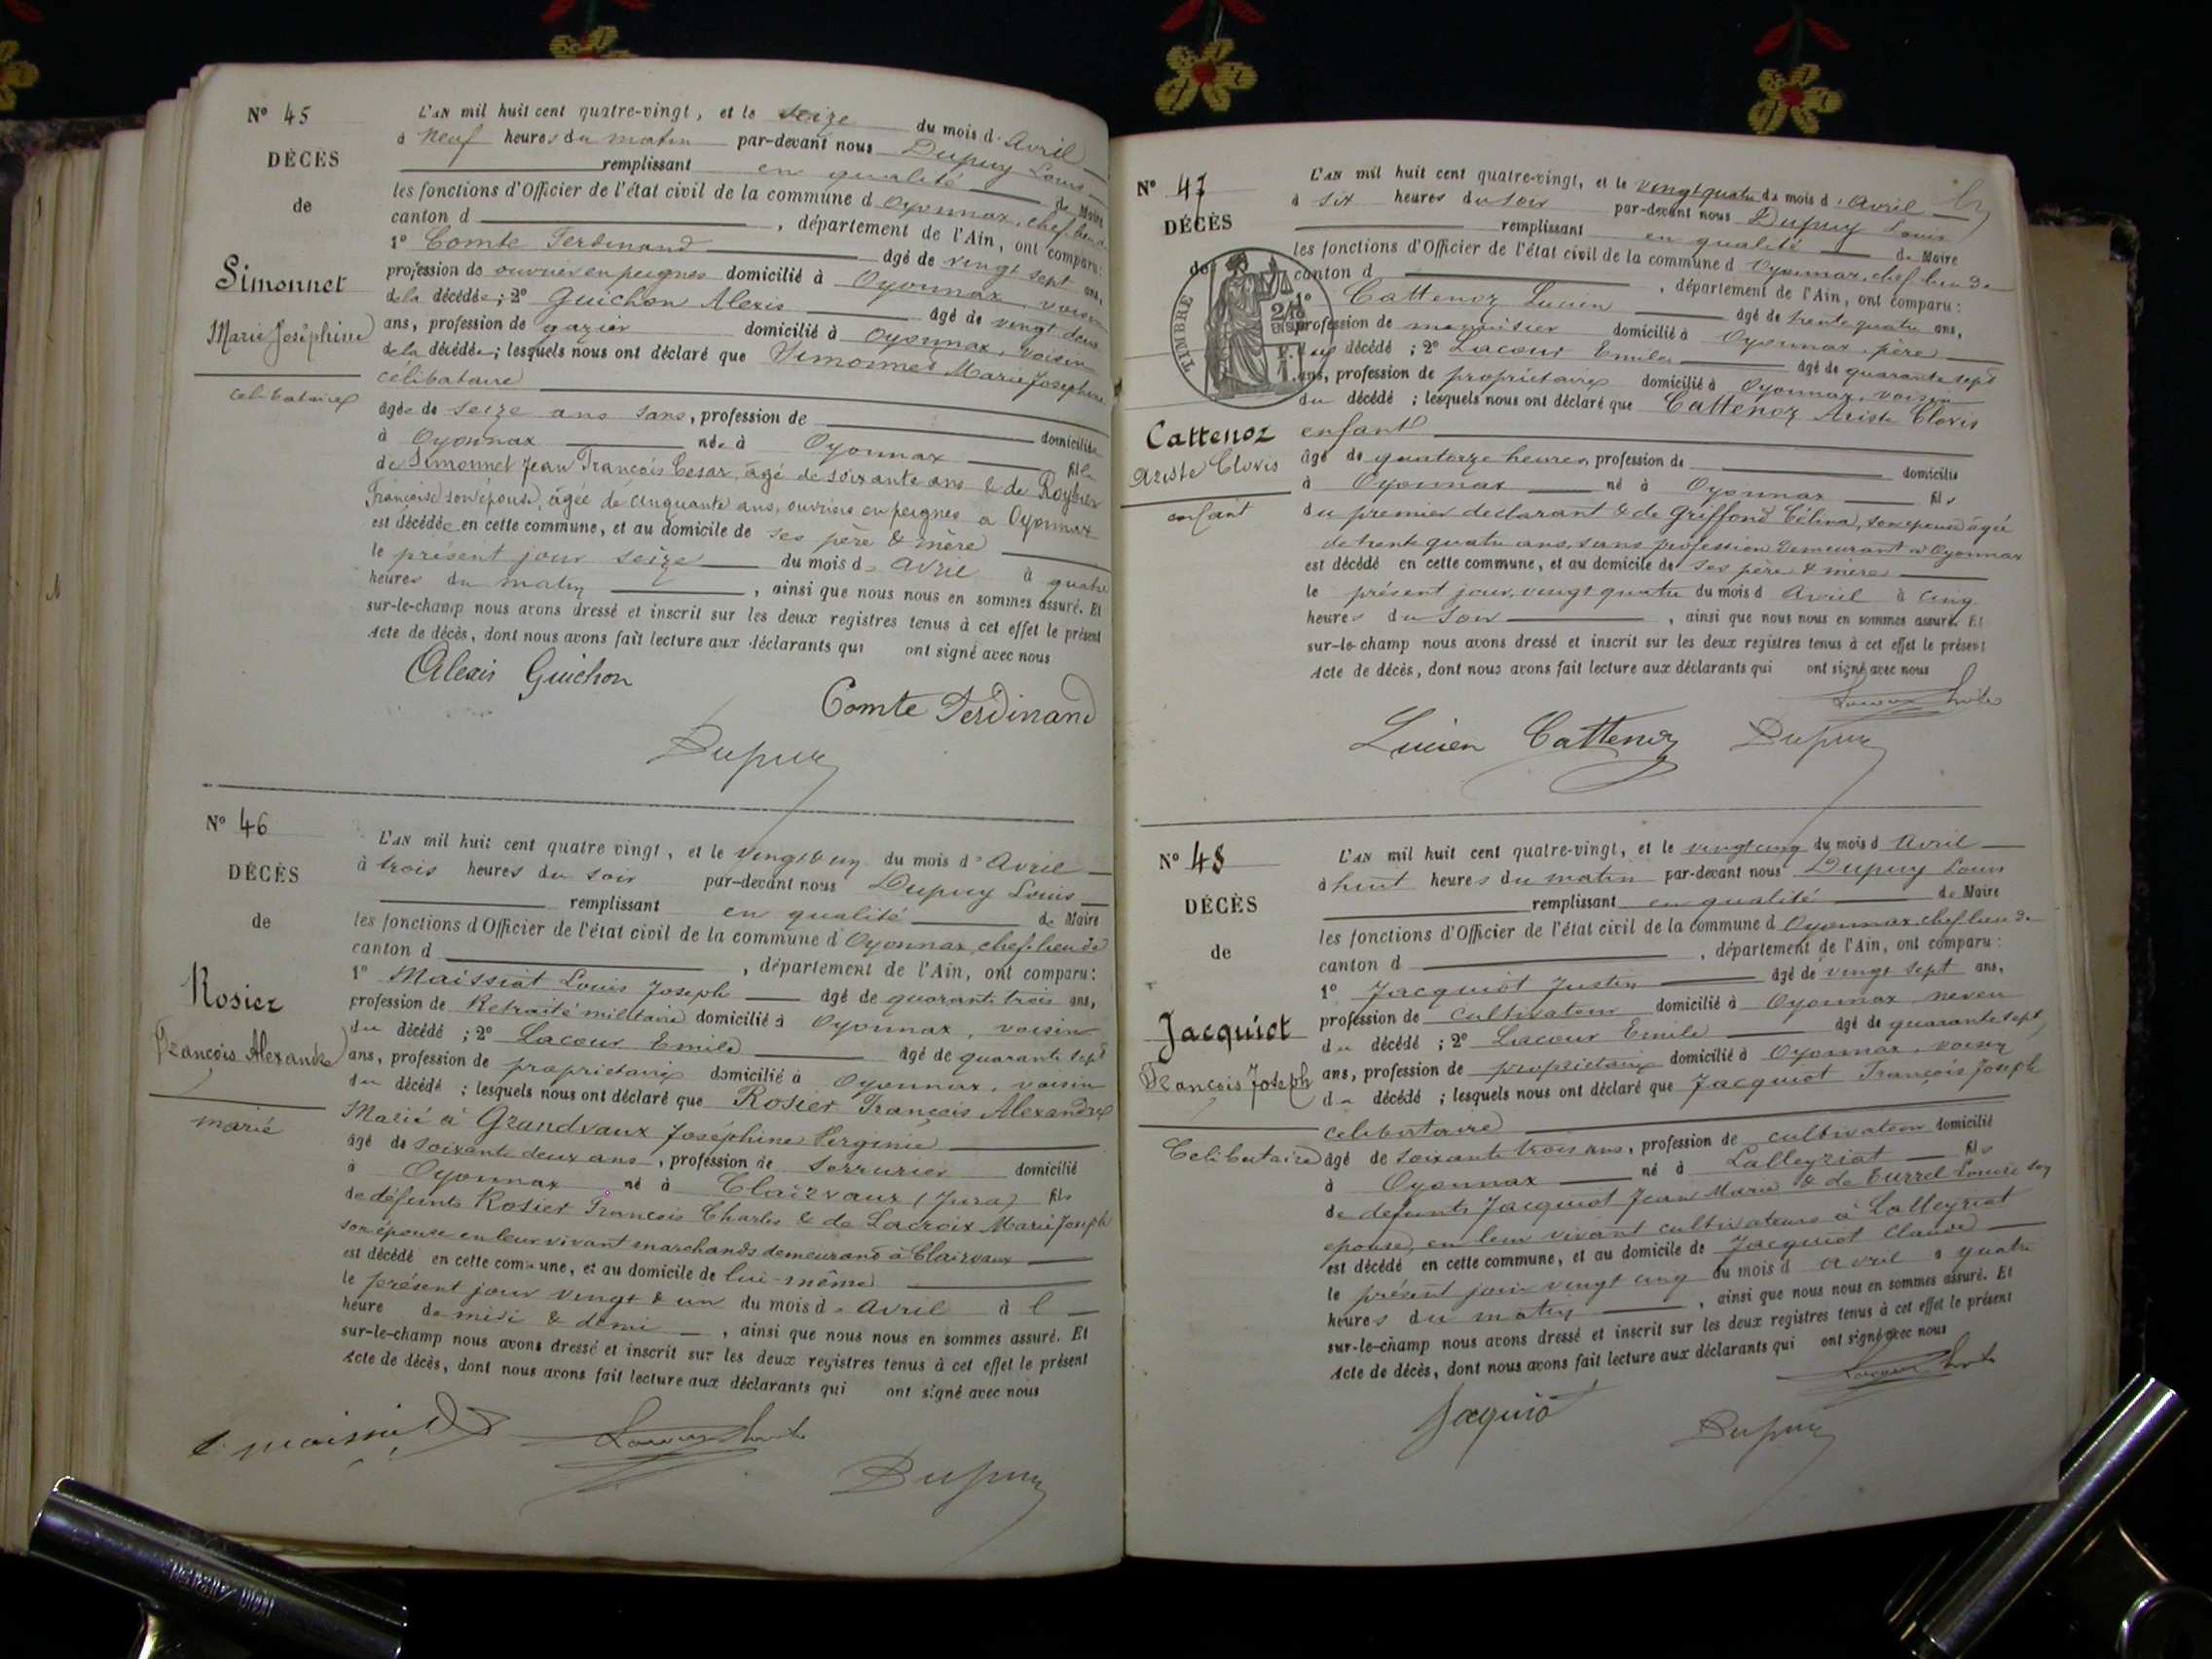 N° 45
DÉCÈS
de
Simonnet
Marie Joséphine
célibataire
L'AN mil huit cent quatre-vingt, et le seize du mois d'Avril
à neuf heures du matin par-devant nous Dupuy Louis
remplissant en qualité de Maire
les fonctions d'Officier de l'état civil de la commune d'Oyonnax, chef lieu de
canton d , département de l'Ain, ont comparu:
1° Comte Ferdinand âgé de vingt sept ans,
profession de ouvrier en peignes domicilié à Oyonnax, voisin
de la décédée; 2° Guichon Alexis âgé de vingt deux
ans, profession de gazier domicilié à Oyonnax, voisin
de la décédée; lesquels nous ont déclaré que Simonnet Marie Josephine
célibataire
âgée de seize ans sans, profession de domiciliée
à Oyonnax née à Oyonnax fille
de Simonnet Jean François Cesar, âgé de soixante ans & de Roybier
Françoise son épouse, âgée de cinquante ans, ouvriers en peignes à Oyonnax
est décédée en cette commune, et au domicile de ses père & mère
le présent jour seize du mois d'Avril à quatre
heures du matin , ainsi que nous nous en sommes assuré. Et
sur-le-champ nous avons dressé et inscrit sur les deux registres tenus à cet effet le présent
Acte de décès, dont nous avons fait lecture aux déclarants qui ont signé avec nous
Alexis Guichon
Comte Ferdinand
Dupuy
N° 46
DÉCÈS
de
Rosier
François Alexandre
marié
L'AN mil huit cent quatre vingt, et le vingt & un du mois d'Avril
à trois heures du soir par-devant nous Dupuy Louis
remplissant en qualité de Maire
les fonctions d'Officier de l'état civil de la commune d'Oyonnax, chef lieu de
canton d , département de l'Ain, ont comparu:
1° Maissiat Louis Joseph âgé de quarante trois ans,
profession de Retraité militaire domicilié à Oyonnax, voisin
du décédé; 2° Lacour Emile âgé de quarante sept
ans, profession de propriétaire domicilié à Oyonnax, voisin
du décédé; lesquels nous ont déclaré que Rosier François Alexandre
Marié à Grandvaux Joséphine Virginie
âgé de soixante deux ans, profession de serrurier domicilié
à Oyonnax né à Clairvaux (Jura) fils
de défunts Rosier François Charles & de Lacroix Marie Joseph
son épouse en leur vivant marchands demeurant à Clairvaux
est décédé en cette commune, et au domicile de lui-même
le présent jour vingt & un du mois d'Avril à l
heure de midi & demi , ainsi que nous nous en sommes assuré. Et
sur-le-champ nous avons dressé et inscrit sur les deux registres tenus à cet effet le présent
Acte de décès, dont nous avons fait lecture aux déclarants qui ont signé avec nous
Dupuy
N° 47
DÉCÈS
de
TIMBRE
Cattenoz
Ariste Clovis
enfant
L'AN mil huit cent quatre-vingt, et le vingt quatre du mois d'Avril
à six heures du soir par-devant nous Dupuy Louis
remplissant en qualité de Maire
les fonctions d'Officier de l'état civil de la commune d'Oyonnax, chef lieu de
canton d , département de l'Ain, ont comparu:
1° Cattenoz Lucien âgé de trente quatre ans,
profession de menuisier domicilié à Oyonnax, père
du décédé; 2° Lacour Emile âgé de quarante sept
ans, profession de propriétaire domicilié à Oyonnax, voisin
du décédé; lesquels nous ont déclaré que Cattenoz Ariste Clovis
enfant
âgé de quatorze heures, profession de domicilié
à Oyonnax né à Oyonnax fils
du premier déclarant & de Griffond Célina, son épouse âgée
de trente quatre ans, sans profession demeurant à Oyonnax
est décédé en cette commune, et au domicile de ses père & mère
le présent jour, vingt quatre du mois d Avril à cinq
heures du soir , ainsi que nous nous en sommes assuré. Et
sur-le-champ nous avons dressé et inscrit sur les deux registres tenus à cet effet le présent
Acte de décès, dont nous avons fait lecture aux déclarants qui ont signé avec nous
Lucien Cattenoz
Dupuy
N° 48
DÉCÈS
de
Jacquiot
François Joseph
Celibataire
L'AN mil huit cent quatre-vingt, et le vingt cinq du mois d Avril
à huit heures du matin par-devant nous Dupuy Louis
remplissant en qualité de Maire
les fonctions d'Officier de l'état civil de la commune d Oyonnax, chef lieu de
canton d , département de l'Ain, ont comparu:
1° Jacquiot Justin âgé de vingt sept ans,
profession de cultivateur domicilié à Oyonnax neveu
du décédé; 2° Lacour Emile âgé de quarante sept
ans, profession de propriétaire domicilié à Oyonnax, voisin
du décédé; lesquels nous ont déclaré que Jacquiot François Joseph
celibataire
âgé de soixante trois ans, profession de cultivateur domicilié
à Oyonnax né à Lalleyriat fils
de defunts Jacquiot Jean Marie & de Burrel Louise son
epouse, en leur vivant cultivateurs à Lalleyriat
est décédé en cette commune, et au domicile de Jacquiot Claude
le présent jour vingt cinq du mois d avril à quatre
heures du matin , ainsi que nous nous en sommes assuré. Et
sur-le-champ nous avons dressé et inscrit sur les deux registres tenus à cet effet le présent
Acte de décès, dont nous avons fait lecture aux déclarants qui ont signé avec nous
Jaquiot
Dupuy